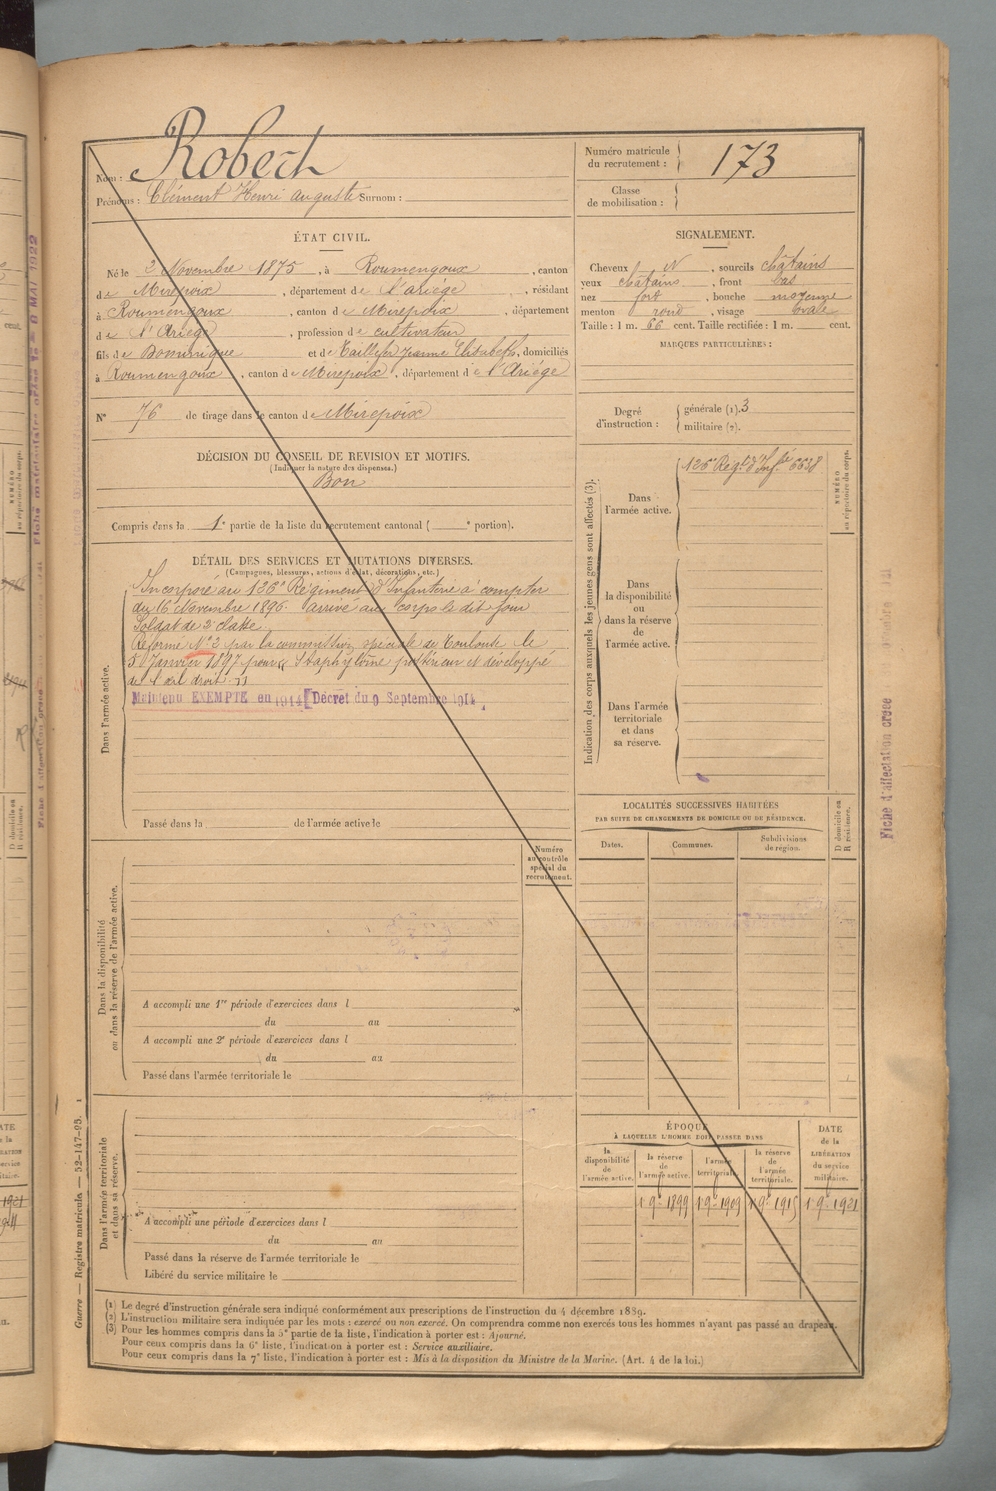 Nom : Robert
Prénoms : Clément Henri auguste Surnom :
Numéro matricule
du recrutement : 173
Classe
de mobilisation :
ÉTAT CIVIL.
Né le 2 Novembre 1875, à Roumengoux, canton
de Mirepoix, département de l'ariège, résidant
à Roumengoux, canton de Mirepoix, département
de l'Ariège, profession de cultivateur
fils de Dominique et de Taillefer Jeanne Elisabeth, domiciliés
à Roumengoux, canton de Mirepoix, département de l'Ariége
N° 76 de tirage dans le canton de Mirepoix
SIGNALEMENT.
Cheveux N, sourcils châtains
yeux châtains, front bas
nez fort, bouche moyenne
menton rond, visage ovale
Taille : 1 m. 66 cent. Taille rectifiée : 1 m. cent.
MARQUES PARTICULIÈRES :
Degré
d'instruction :
générale (1). 3
militaire (2).
DÉCISION DU CONSEIL DE REVISION ET MOTIFS.
(Indiquer la nature des dispenses.)
Bon
Compris dans la 1e partie de la liste du recrutement cantonal ( e portion).
DÉTAIL DES SERVICES ET MUTATIONS DIVERSES.
(Campagnes, blessures, actions d'éclat, décorations, etc.)
Dans l'armée active.
Incorporé au 126e Régiment d'Infanterie à compter
du 16 Novembre 1896. arrivé au corps le dit jour
Soldat de 2e classe.
Réformé N° 2 par la commission spéciale de Toulouse le
5 Janvier 1897 pour Staphylôme postérieur et développé
de l'œil droit.
Maintenu EXEMPTE en 1914 Décret du 9 Septembre 1914
Passé dans la de l'armée active le
Indication des corps auxquels les jeunes gens sont affectés (3).
NUMÉRO
au répertoire du corps.
Dans
l'armée active.
126e Régt d'Infie 6638
Dans
la disponibilité
ou
dans la réserve
de
l'armée active.
Dans l'armée
territoriale
et dans
sa réserve.
LOCALITÉS SUCCESSIVES HABITÉES
PAR SUITE DE CHANGEMENTS DE DOMICILE OU DE RÉSIDENCE.
Dates.
Communes.
Subdivisions
de région.
D domicile ou
R résidence.
Numéro
au contrôle
spécial du
recrutement.
Dans la disponibilité
ou dans la réserve de l'armée active.
A accompli une 1re période d'exercices dans l
du au
A accompli une 2e période d'exercices dans l
du au
Passé dans l'armée territoriale le
Dans l'armée territoriale
et dans sa réserve.
A accompli une période d'exercices dans l
du au
Passé dans la réserve de l'armée territoriale le
Libéré du service militaire le
ÉPOQUE
À LAQUELLE L'HOMME DOIT PASSER DANS
la
disponibilité
de
l'armée active.
la réserve
de
l'armée active.
l'armée
territoriale.
la réserve
de
l'armée
territoriale.
DATE
de la
LIBÉRATION
du service
militaire.
1 9e 1899 1 9e 1909 1 9e 1915 1 9e 1921
(1) Le degré d'instruction générale sera indiqué conformément aux prescriptions de l'instruction du 4 décembre 1889.
(2) L'instruction militaire sera indiquée par les mots : exercé ou non exercé. On comprendra comme non exercés tous les hommes n'ayant pas passé au drapeau.
(3) Pour les hommes compris dans la 5e partie de la liste, l'indication à porter est : Ajourné.
Pour ceux compris dans la 6e liste, l'indication à porter est : Service auxiliaire.
Pour ceux compris dans la 7e liste, l'indication à porter est : Mis à la disposition du Ministre de la Marine. (Art. 4 de la loi.)
Guerre — Registre matricule. — 52-147-95.
Fiche d'affectation créée